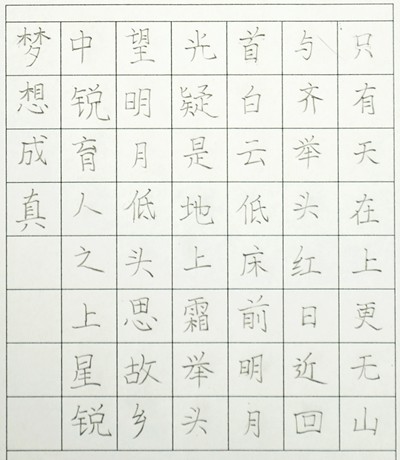 只有天在上更无山
与齐举头红日近回
首白云低床前明月
光疑是地上霜举头
望明月低头思故乡
中锐育人之上星锐
梦想成真